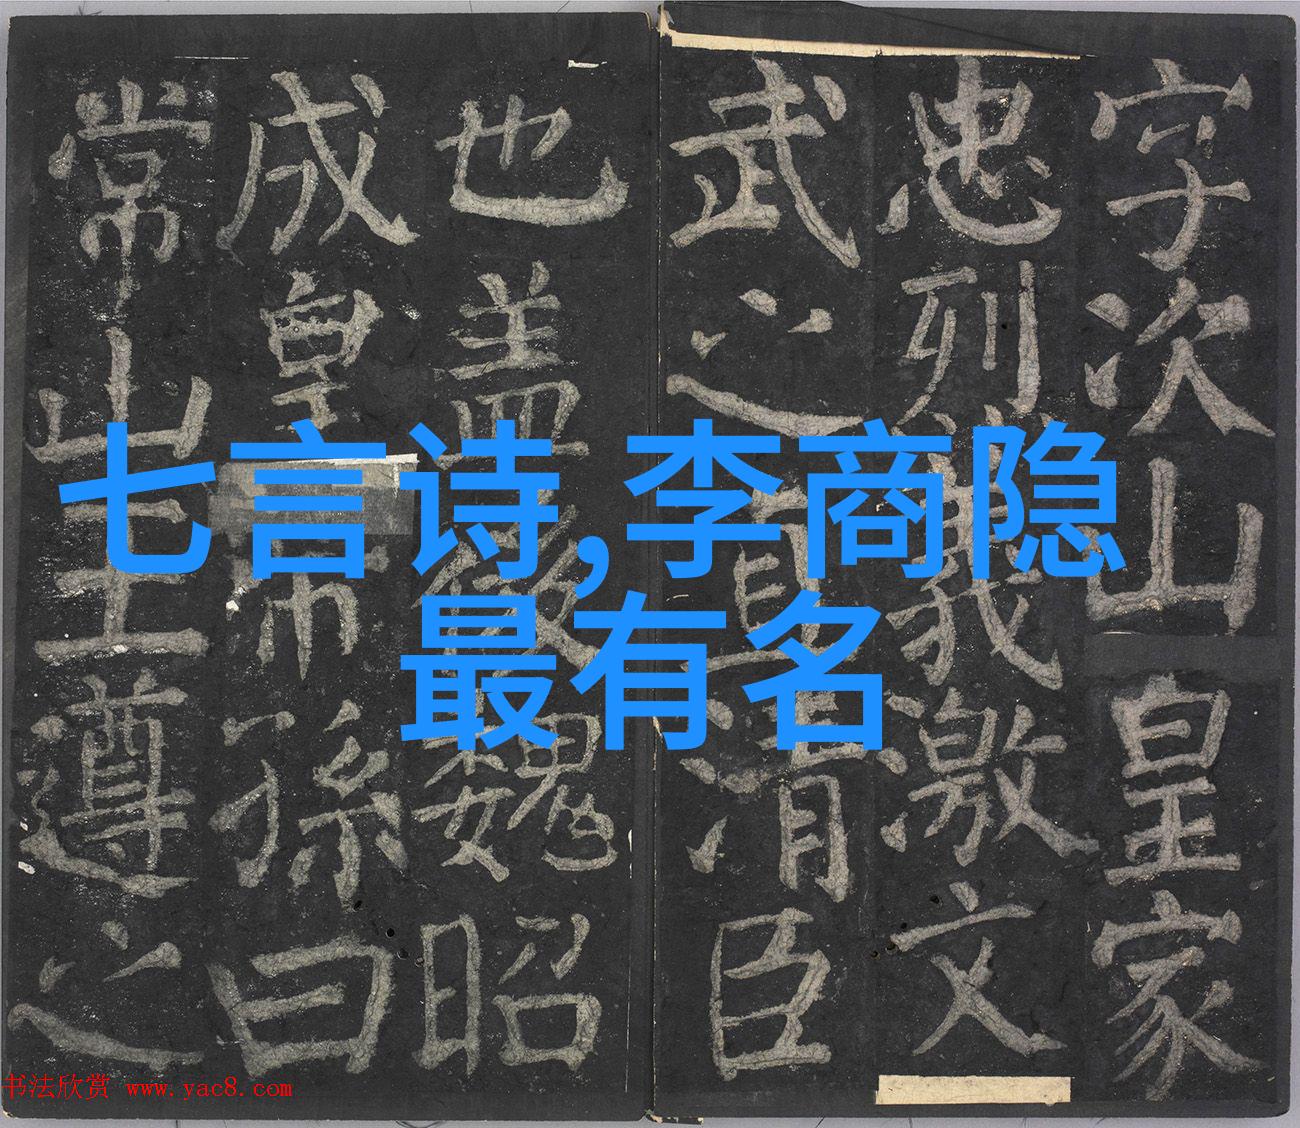 七言诗,李商隐
最有名
字次山皇家
忠烈義激文
武之直清臣
也盖後魏昭
成皇帝孫曰
常山王遵之
书法欣赏 www.yac8.com